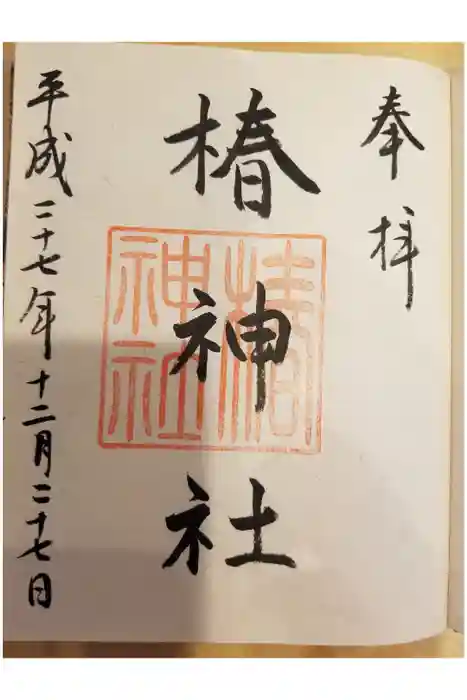 奉拝
椿神社
椿神社
平成二十七年十二月二十七日